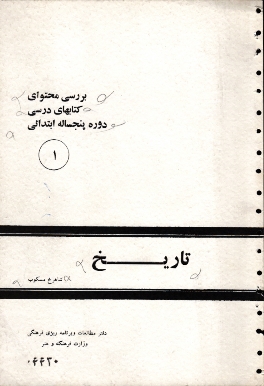 بررسی محتوای
کتابهای درسی
دوره پنجساله ابتدائی
۱
تاریخ
شاهرخ مسکوب
دفتر مطالعات وبرنامه ریزی فرهنگی
وزارت فرهنگ و هنر